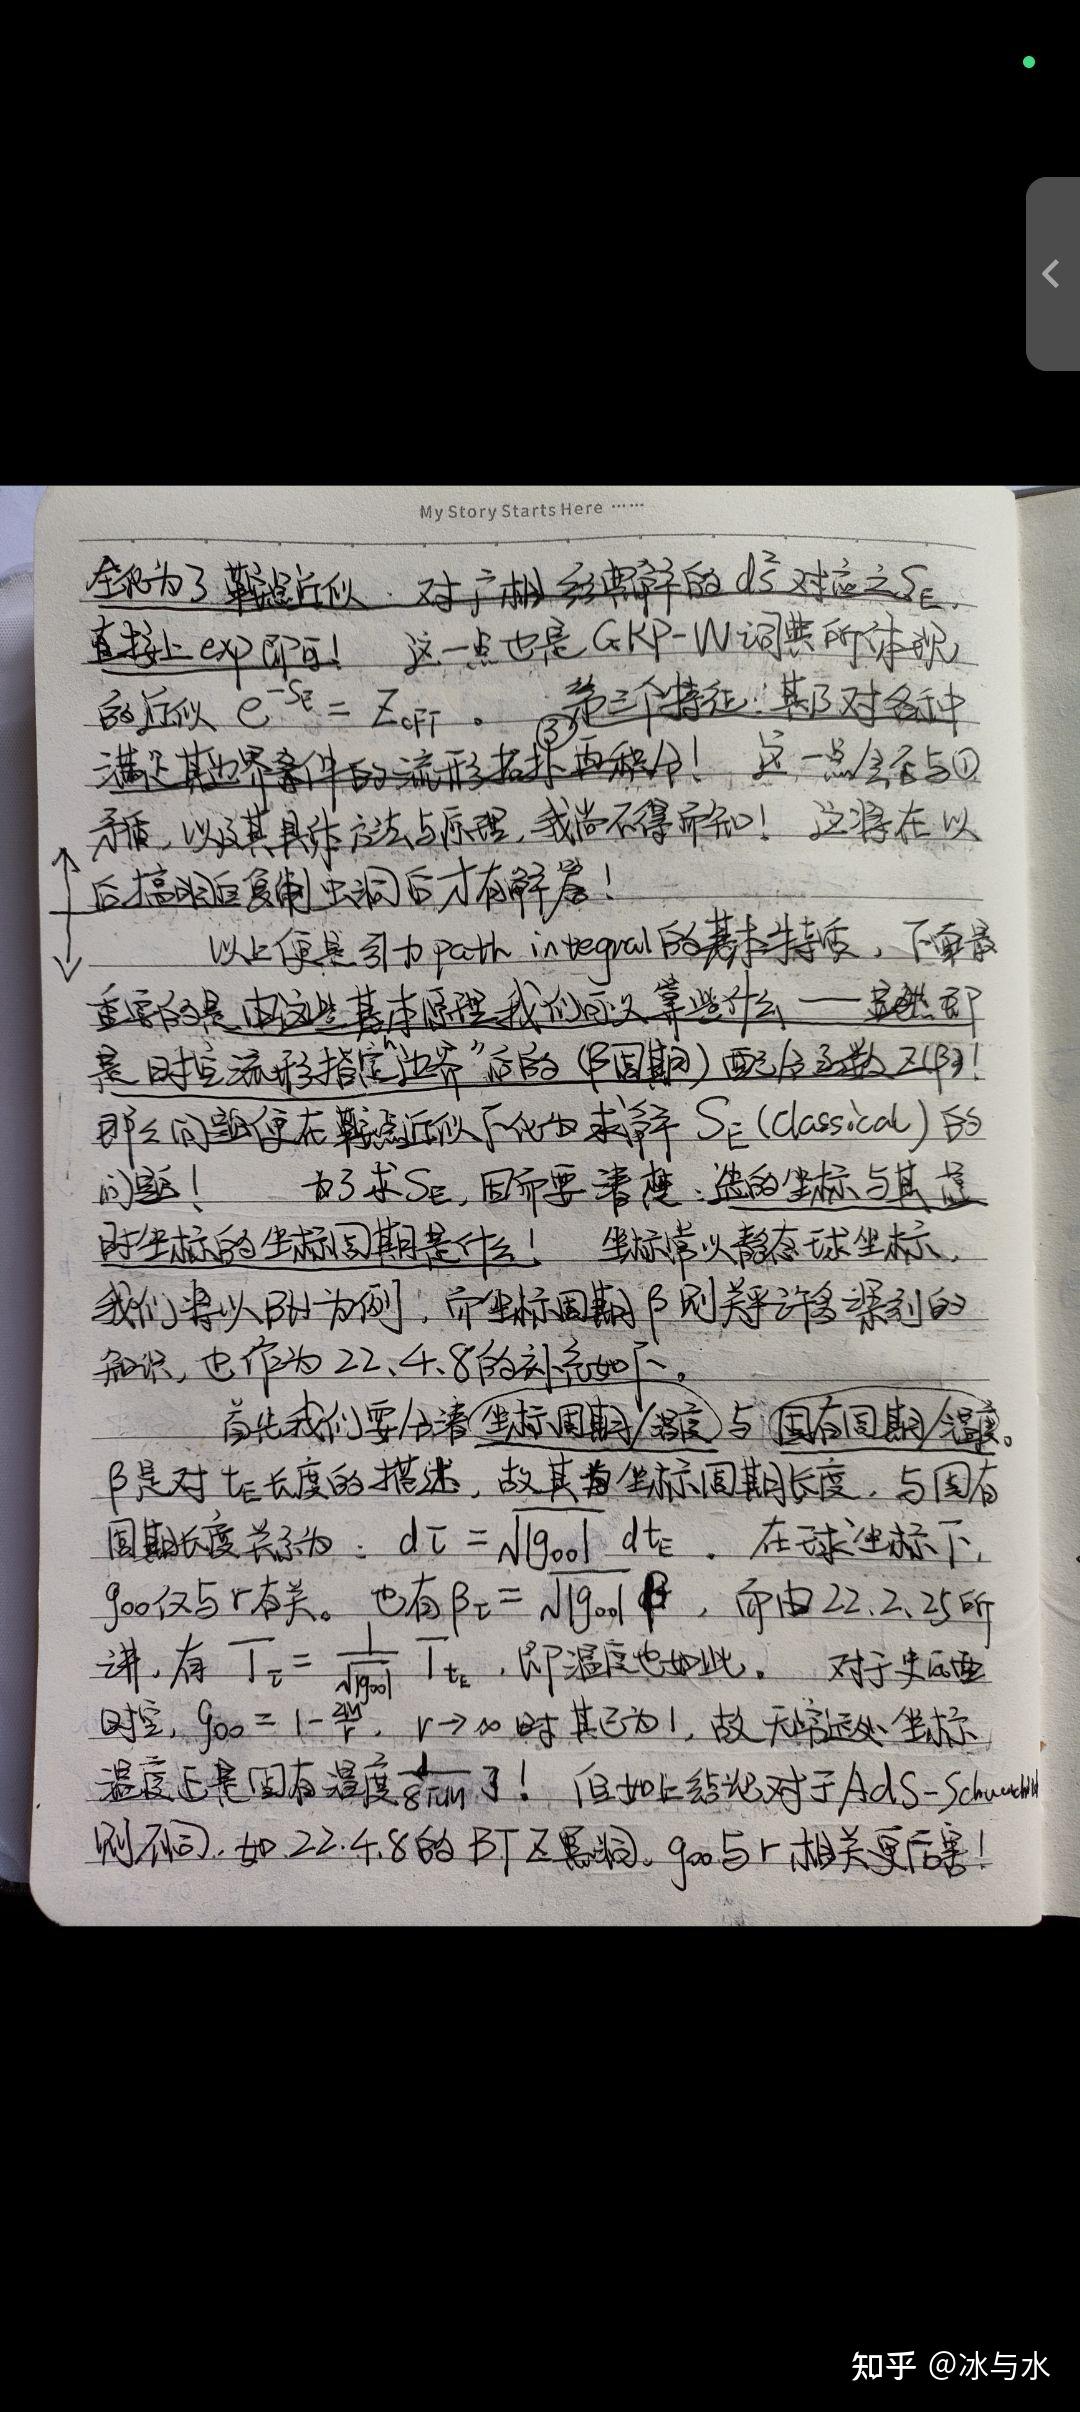 My Story Starts Here ......
全犯为了鞍点近似. 对于相经典解的 ds² 对应之 S_E,
直接上 exp 即可! 这一点也是 GKP-W 词典所体现
的近似 e^{-S_E} = Z_{CFT}。 ③ 第三个特征:其乃对各种
满足其边界条件的流形拓扑再积分! 这一点会否与①
矛盾,以及其具体方法与原理,我尚不得而知! 这将在以
后搞明白复制虫洞后才有解答!
以上便是引力 path integral 的基本特质,下面最
重要的是由这些基本原理我们可以算些什么——显然即
是时空流形指定"边界"后的(β周期)配分函数 Z(β)!
那么问题便在鞍点近似下化为求解 S_E (classical) 的
问题! 为了求 S_E, 因而要清楚:选的坐标与其虚
时坐标的坐标周期是什么! 坐标常以静态球坐标,
我们将以BH为例,而坐标周期β则关乎许多深刻的
知识,也作为 22.4.8 的补充如下。
首先我们要分清坐标周期/温度与固有周期/温度。
β是对 t_E 长度的描述,故其为坐标周期长度,与固有
周期长度关系为:dτ = √|g₀₀| dt_E . 在球坐标下,
g₀₀仅与r有关。 也有 β_τ = √|g₀₀| β ,而由 22.2.25 所
讲,有 T_τ = 1/√|g₀₀| T_{t_E} ,即温度也如此。 对于史瓦西
时空,g₀₀ = 1 - 2M/r , r→∞ 时其已为1,故无穷远处坐标
温度正是固有温度 1/8πM 了! 但如上结论对于 AdS-Schwarzschild
则不同,如 22.4.8 的 BTZ黑洞。g₀₀与r相关更厉害!
知乎 @冰与水